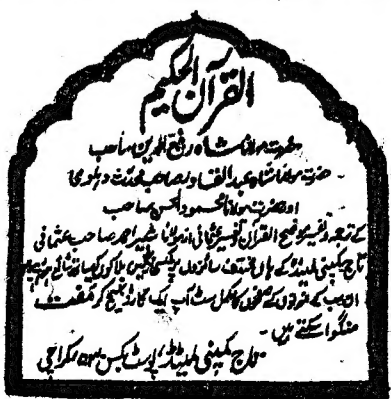 القرآن الحکیم
حضرت مولانا شاہ رفیع الدین صاحب
حضرت مولانا شاہ عبدالقادر صاحب محدث دہلوی
اور حضرت مولانا محمود الحسن صاحب
کے ترجمہ تفسیر موضح القرآن و تفسیر عثمانی از مولانا شبیر احمد صاحب عثمانی
تاج کمپنی لمیٹڈ کے ہاں مختلف سائزوں رنگین بلاکوں کے ساتھ شائع ہوئے ہیں
ان سب کے نمونوں کے صفحوں کا مکمل سٹ آپ ایک کارڈ بھیج کر مفت
منگوا سکتے ہیں ۔
تاج کمپنی لمیٹڈ، پوسٹ بکس کراچی